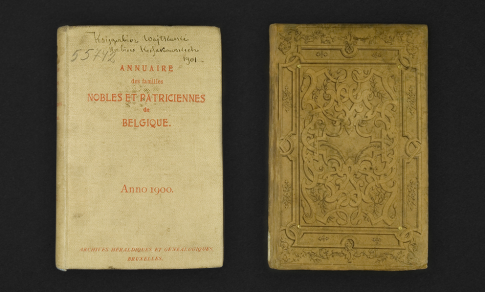 55742
1901
ANNUAIRE
des familles
NOBLES ET PATRICIENNES
de
BELGIQUE.
Anno 1900.
ARCHIVES HÉRALDIQUES ET GÉNÉALOGIQUES,
BRUXELLES.